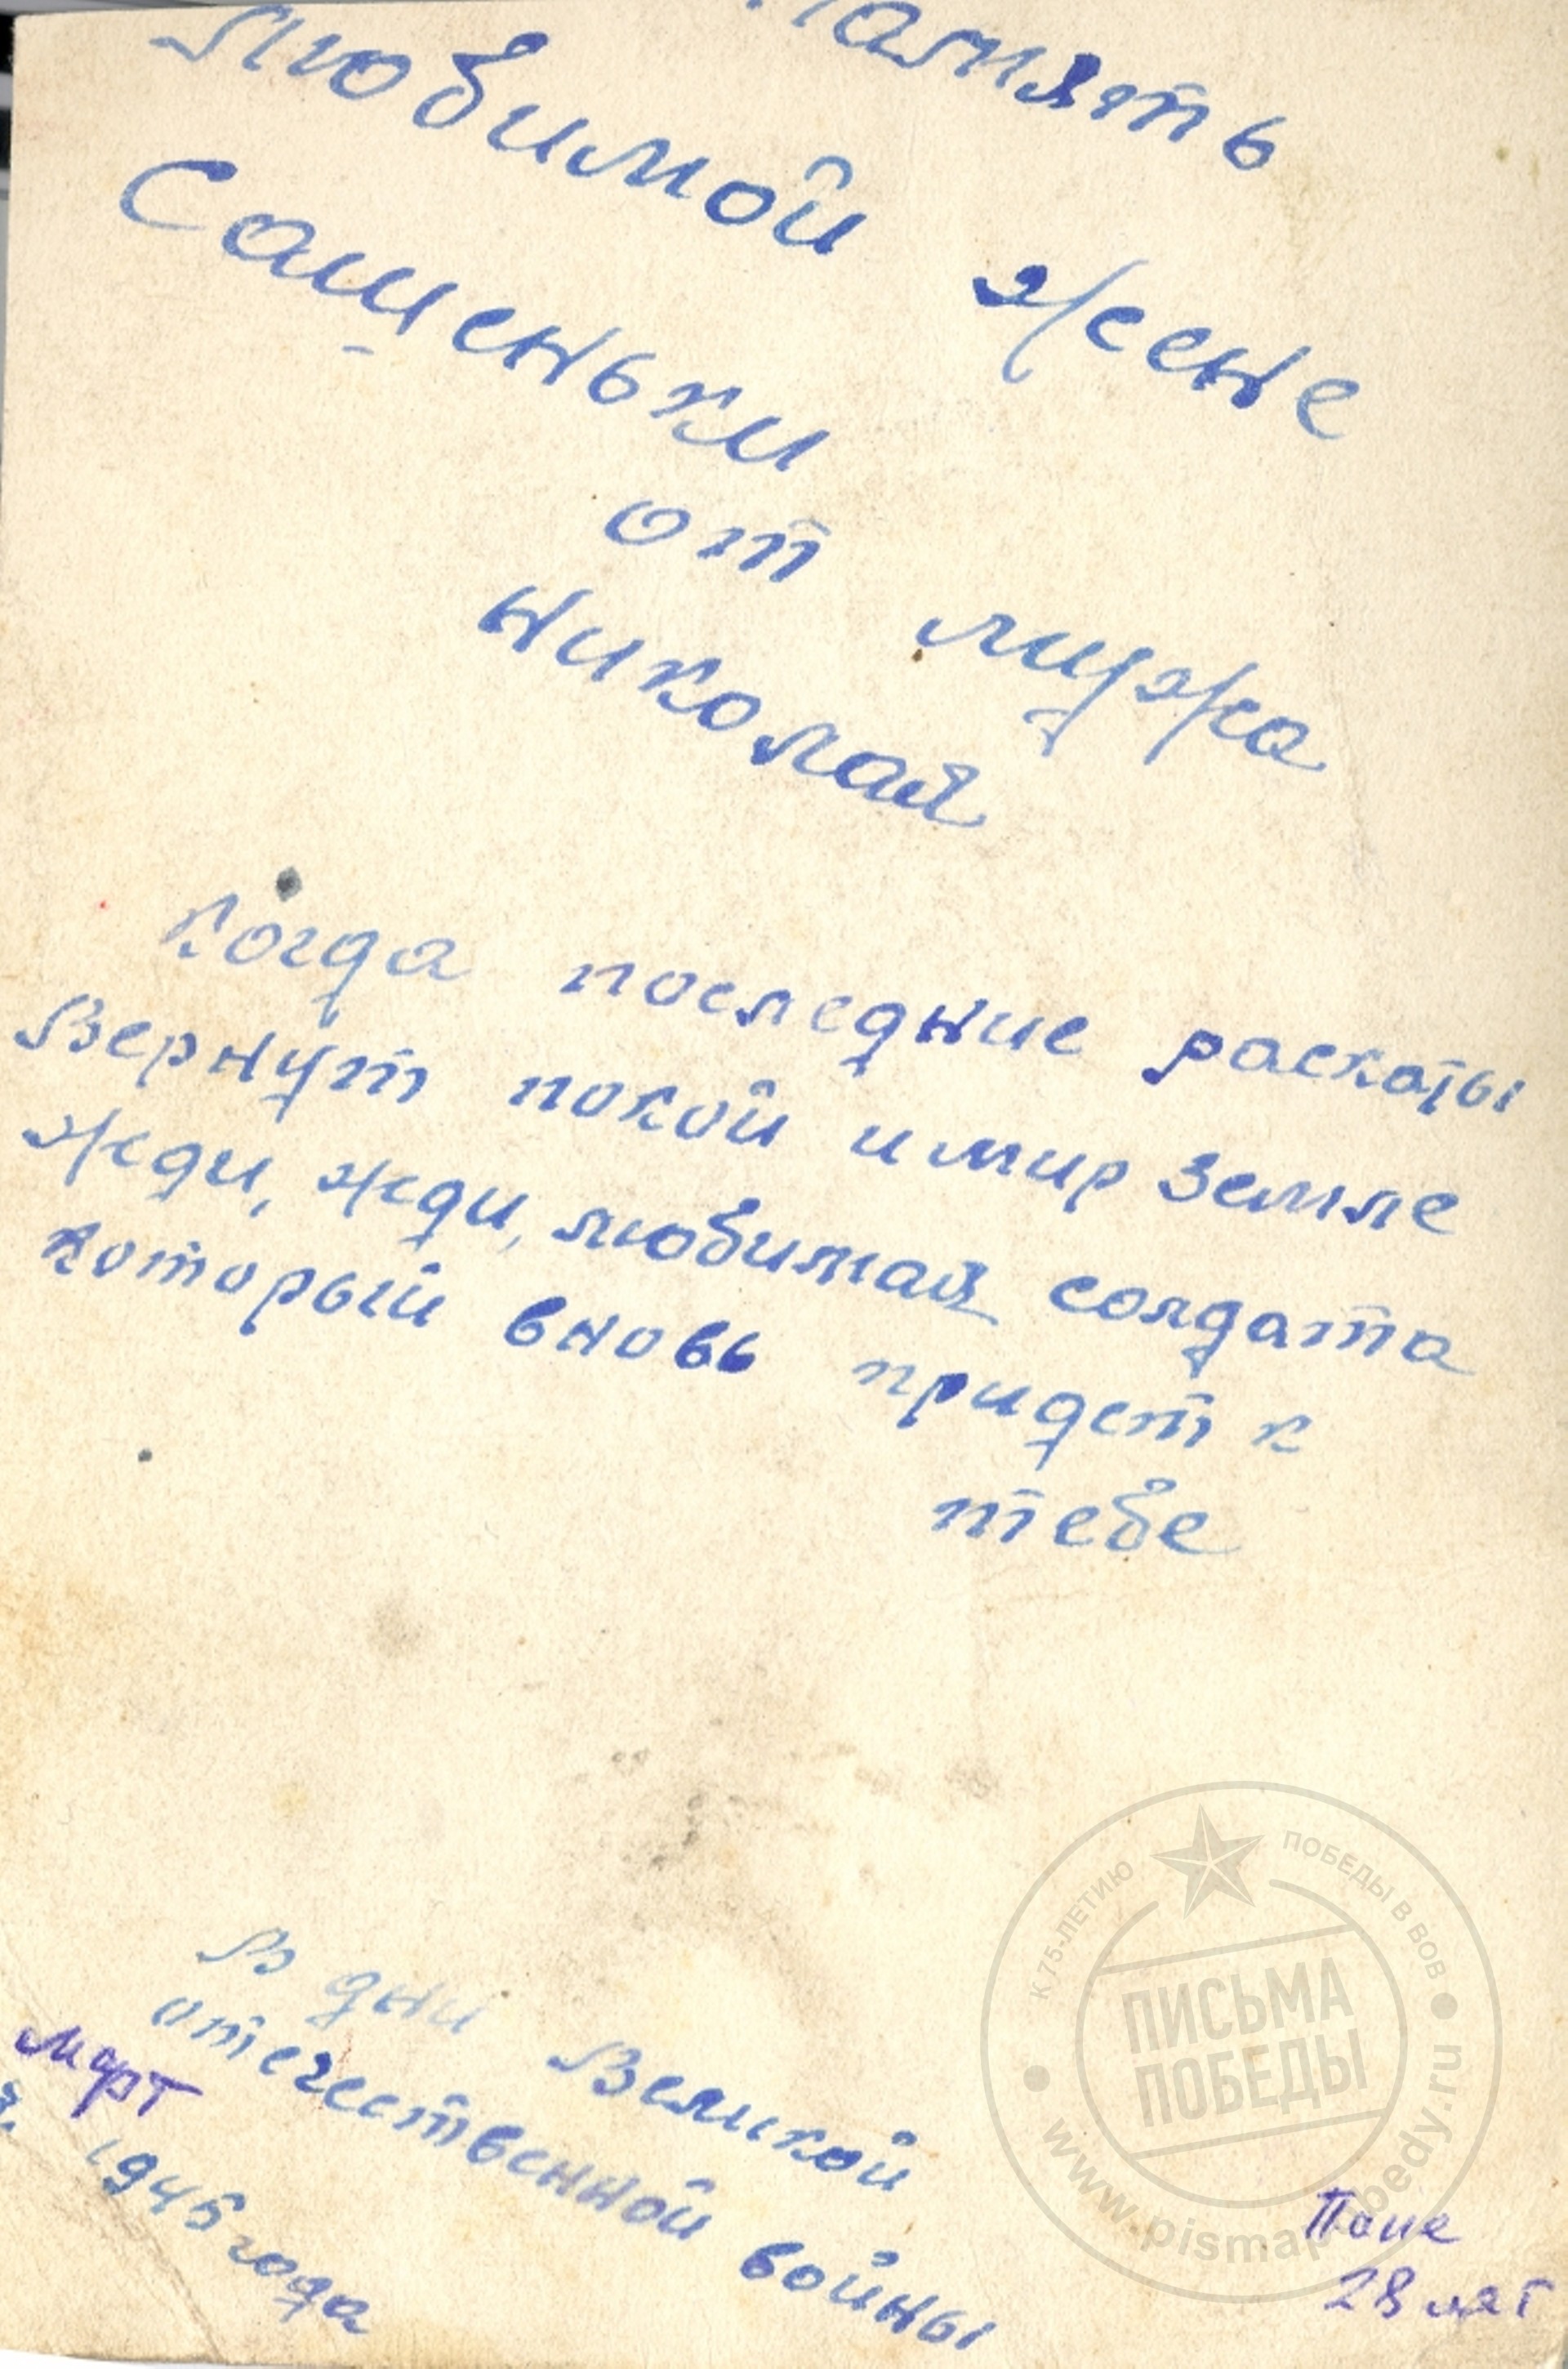 Память
Любимой жене
Сашеньки
от мужа
Николая
Когда последние раскаты
Вернут покой и мир земле
Жди, жди, любимая солдата
который вновь придет к
тебе
В дни Великой
отечественной войны
март
1945 года
Папе
28 лет
К 75-ЛЕТИЮ ПОБЕДЫ В ВОВ
ПИСЬМА
ПОБЕДЫ
www.pismapobedy.ru